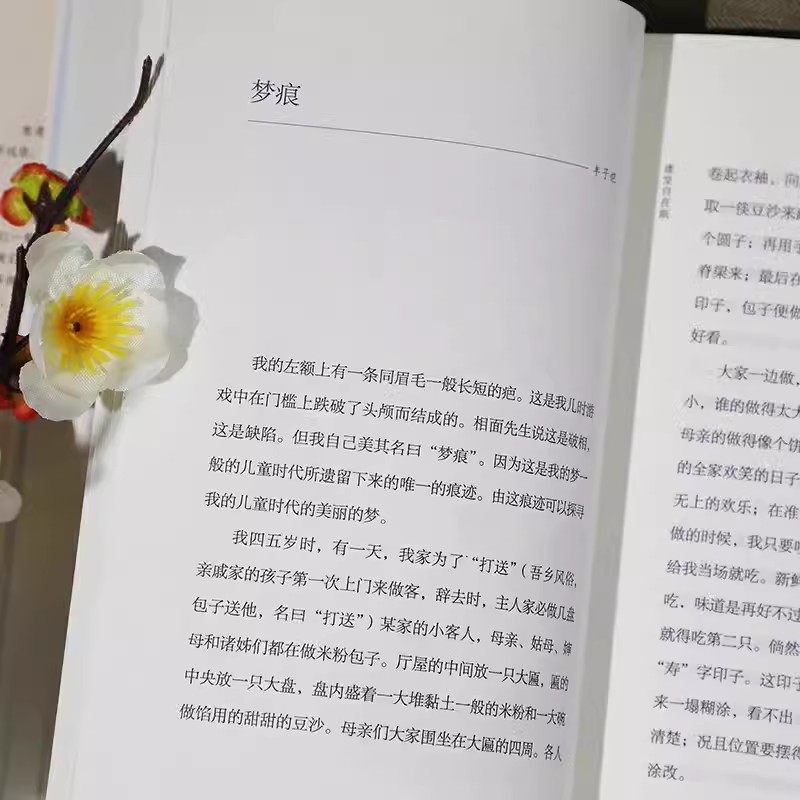 梦痕
丰子恺
我的左额上有一条同眉毛一般长短的疤。这是我儿时游
戏中在门槛上跌破了头颅而结成的。相面先生说这是破相，
这是缺陷。但我自己美其名曰“梦痕”。因为这是我的梦一
般的儿童时代所遗留下来的唯一的痕迹。由这痕迹可以探寻
我的儿童时代的美丽的梦。
我四五岁时，有一天，我家为了“打送”（吾乡风俗，
亲戚家的孩子第一次上门来做客，辞去时，主人家必做几盘
包子送他，名曰“打送”）某家的小客人，母亲、姑母、婶
母和诸姊们都在做米粉包子。厅屋的中间放一只大匾，匾的
中央放一只大盘，盘内盛着一大堆黏土一般的米粉和一大碗
做馅用的甜甜的豆沙。母亲们大家围坐在大匾的四周。各人
卷起衣袖，向
取一筷豆沙来
个圆子；再用手
脊梁来；最后在
印子，包子便做
好看。
大家一边做，
小，谁的做得太大
母亲的做得像个饼
的全家欢笑的日子
无上的欢乐；在准
做的时候，我只要
给我当场就吃。新鲜
吃，味道是再好不过
就得吃第二只。倘然
“寿”字印子。这印子
来一塌糊涂，看不出
清楚；况且位置要摆得
涂改。